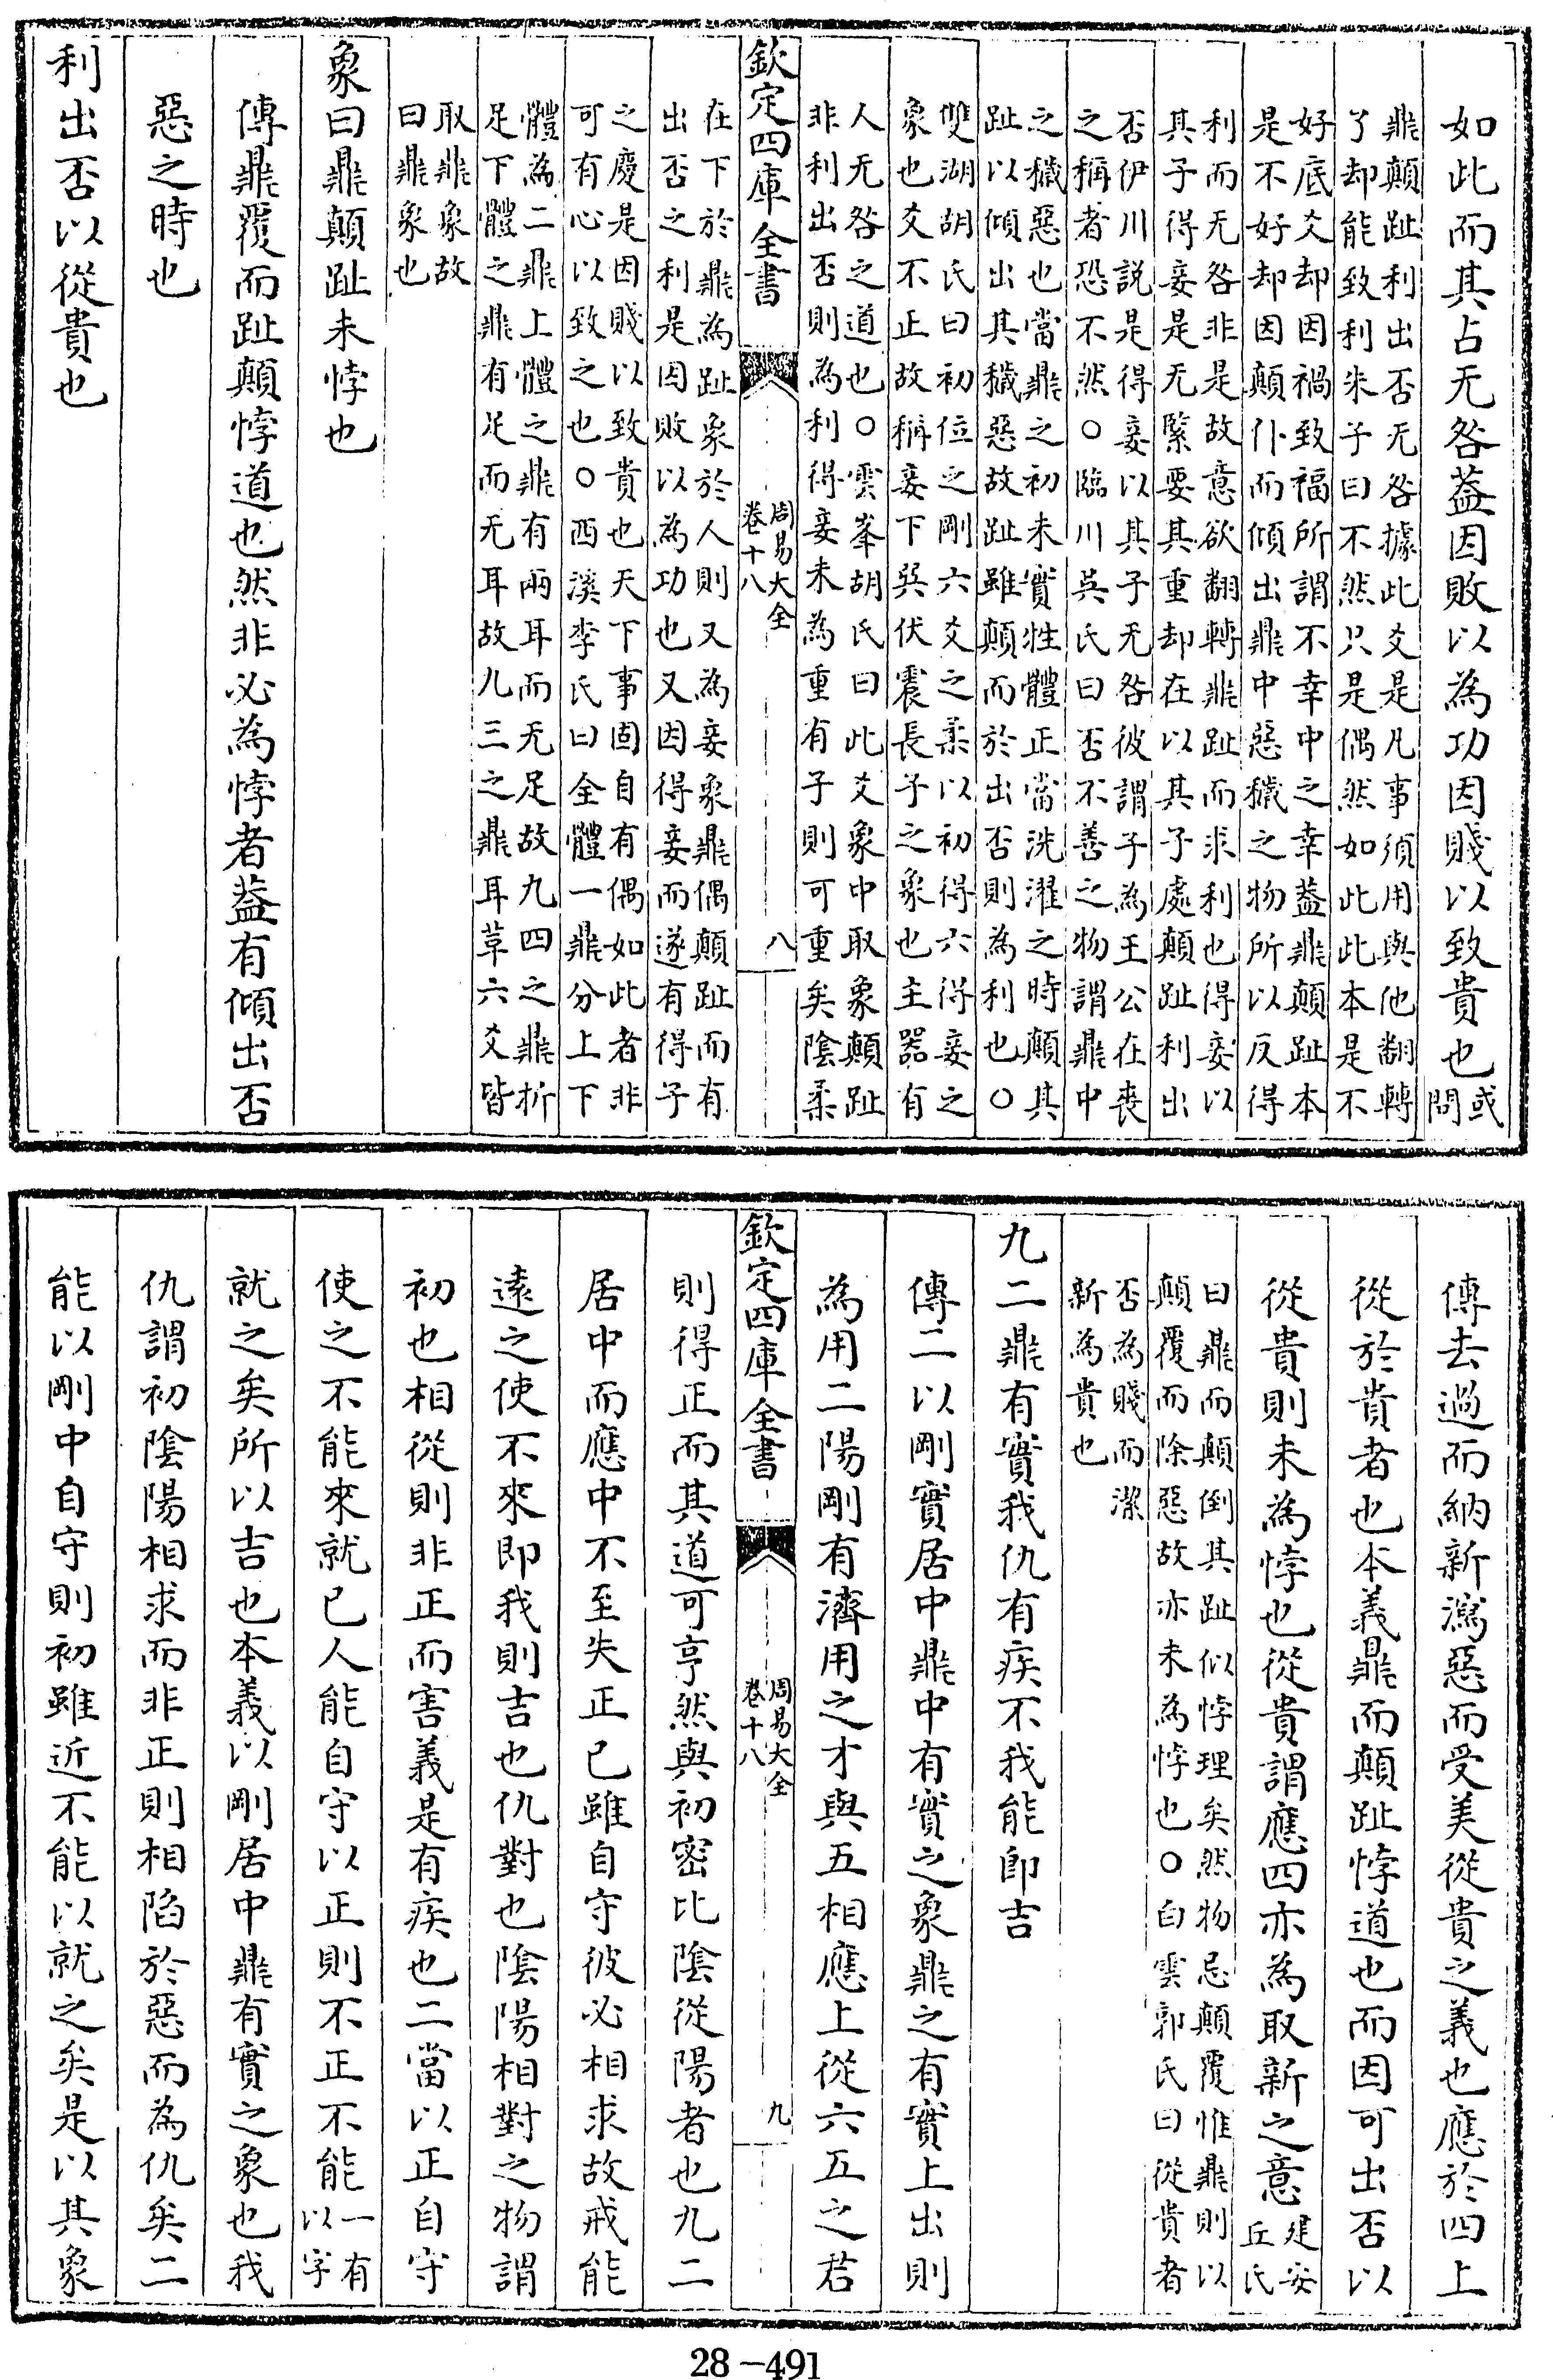 如此而其占无咎葢因敗以為功因賤以致貴也或
問
鼎顛趾利出否无咎據此爻是凡事須用與他翻轉
了却能致利朱子曰不然只是偶然如此此本是不
好底爻却因禍致福所謂不幸中之幸葢鼎顛趾本
是不好却因顛仆而傾出鼎中惡穢之物所以反得
利而无咎非是故意欲翻轉鼎趾而求利也得妾以
其子得妾是无緊要其重却在以其子處顛趾利出
否伊川説是得妾以其子无咎彼謂子為王公在喪
之稱者恐不然○臨川吳氏曰否不善之物謂鼎中
之穢惡也當鼎之初未實牲體正當洗濯之時顛其
趾以傾出其穢惡故趾雖顛而於出否則為利也○
雙湖胡氏曰初位之剛六爻之柔以初得六得妾之
象也爻不正故稱妾下巽伏震長子之象也主器有
人无咎之道也○雲峯胡氏曰此爻象中取象顛趾
非利出否則為利得妾未為重有子則可重矣陰柔
欽定四庫全書
周易大全
卷十八
八
在下於鼎為趾象於人則又為妾象鼎偶顛趾而有
出否之利是因敗以為功也又因得妾而遂有得子
之慶是因賤以致貴也天下事固自有偶如此者非
可有心以致之也○西溪李氏曰全體一鼎分上下
體為二鼎上體之鼎有兩耳而无足故九四之鼎折
足下體之鼎有足而无耳故九三之鼎耳革六爻皆
取鼎象故
曰鼎象也
象曰鼎顛趾未悖也
傳鼎覆而趾顛悖道也然非必為悖者葢有傾出否
惡之時也
利出否以從貴也
傳去過而納新瀉惡而受美從貴之義也應於四上
從於貴者也本義鼎而顛趾悖道也而因可出否以
從貴則未為悖也從貴謂應四亦為取新之意建安
丘氏
曰鼎而顛倒其趾似悖理矣然物忌顛覆惟鼎則以
顛覆而除惡故亦未為悖也○白雲郭氏曰從貴者
否為賤而潔
新為貴也
九二鼎有實我仇有疾不我能即吉
傳二以剛實居中鼎中有實之象鼎之有實上出則
為用二陽剛有濟用之才與五相應上從六五之君
則得正而其道可亨然與初密比陰從陽者也九二
居中而應中不至失正已雖自守彼必相求故戒能
遠之使不來即我則吉也仇對也陰陽相對之物謂
初也相從則非正而害義是有疾也二當以正自守
使之不能來就已人能自守以正則不正不能一有
以字
就之矣所以吉也本義以剛居中鼎有實之象也我
仇謂初陰陽相求而非正則相陷於惡而為仇矣二
能以剛中自守則初雖近不能以就之矣是以其象
欽定四庫全書
周易大全
卷十八
九
28-491